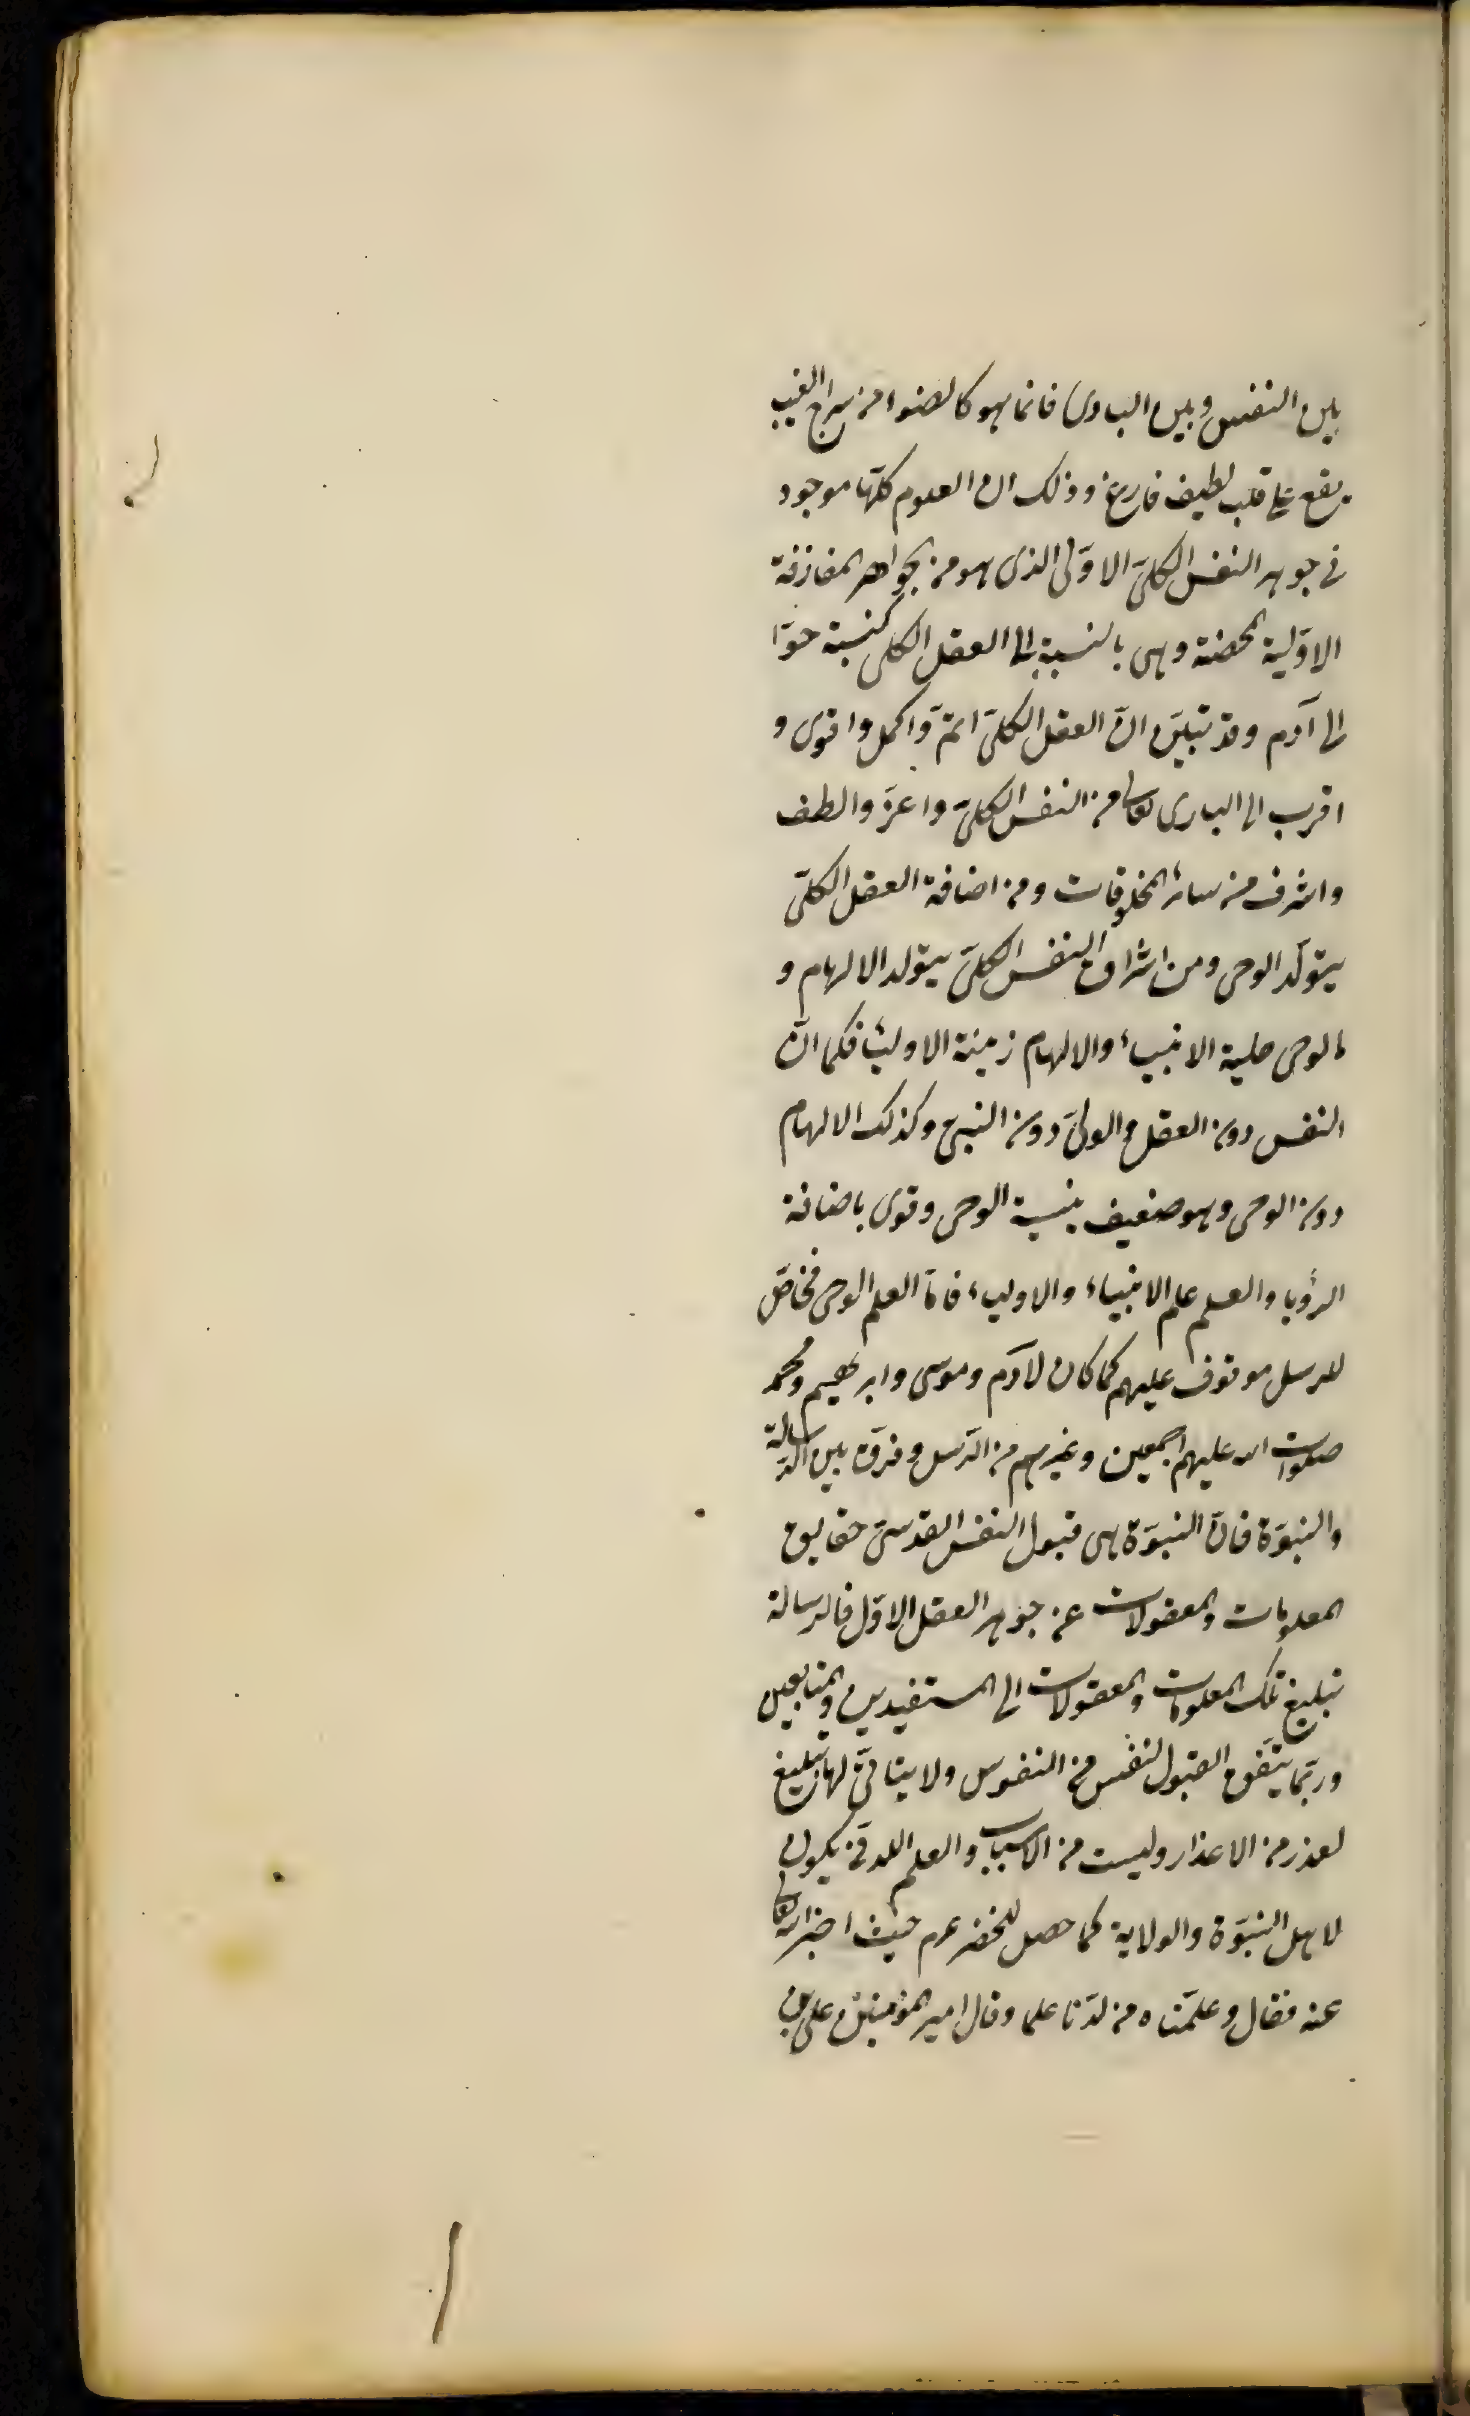 بين النفس وبين البارى فانما هو كالضوء من سراج الغيب
يقع على قلب لطيف فارغ وذلك ان العلوم كلّها موجود
فى جوهر النفس الكلىّ الاوّلى الذى هو من الجواهر المفارقة
الاوّلية المحضة وهى بالنسبة الى العقل الكلى كنسبة حوّا
الى آدم وقد تبيّن انّ العقل الكلىّ اتمّ واكمل واقوى و
اقرب الى البارى تعالى من النفس الكلىّ واعزّ والطف
واشرف من سائر المخلوقات ومن اضافة العقل الكلىّ
يتولّد الوحى ومن اشراق النفس الكلىّ يتولد الالهام و
الوحى حلية الانبياء والالهام زينة الاولياء فكما انّ
النفس دون العقل والولىّ دون النبى وكذلك الالهام
دون الوحى وهو ضعيف بنسبة الوحى وقوى باضافة
الرؤيا والعلم علم الانبياء والاولياء فامّا العلم الوحى فخاصّ
للرسل موقوف عليهم كما كان لآدم وموسى وابرهيم ومحمد
صلوات الله عليهم اجمعين وغيرهم من الرّسل وفرّق بين الرّسالة
والنبوّة فانّ النبوّة هى قبول النفس القدسىّ حقايق
المعلومات والمعقولات عن جوهر العقل الاوّل فالرسالة
تبليغ تلك المعلومات والمعقولات الى المستفيدين والمتابعين
وربّما يتّفق القبول لنفس من النفوس ولا يتاتىّ لها التبليغ
لعذر من الاعذار وليست من الاسباب والعلم اللدنّى يكون
لاهل النبوّة والولاية كما حصل للخضر عم حيث اخبر الله تعالى
عنه فقال وعلّمناه من لدنّا علما وقال امير المؤمنين على بن